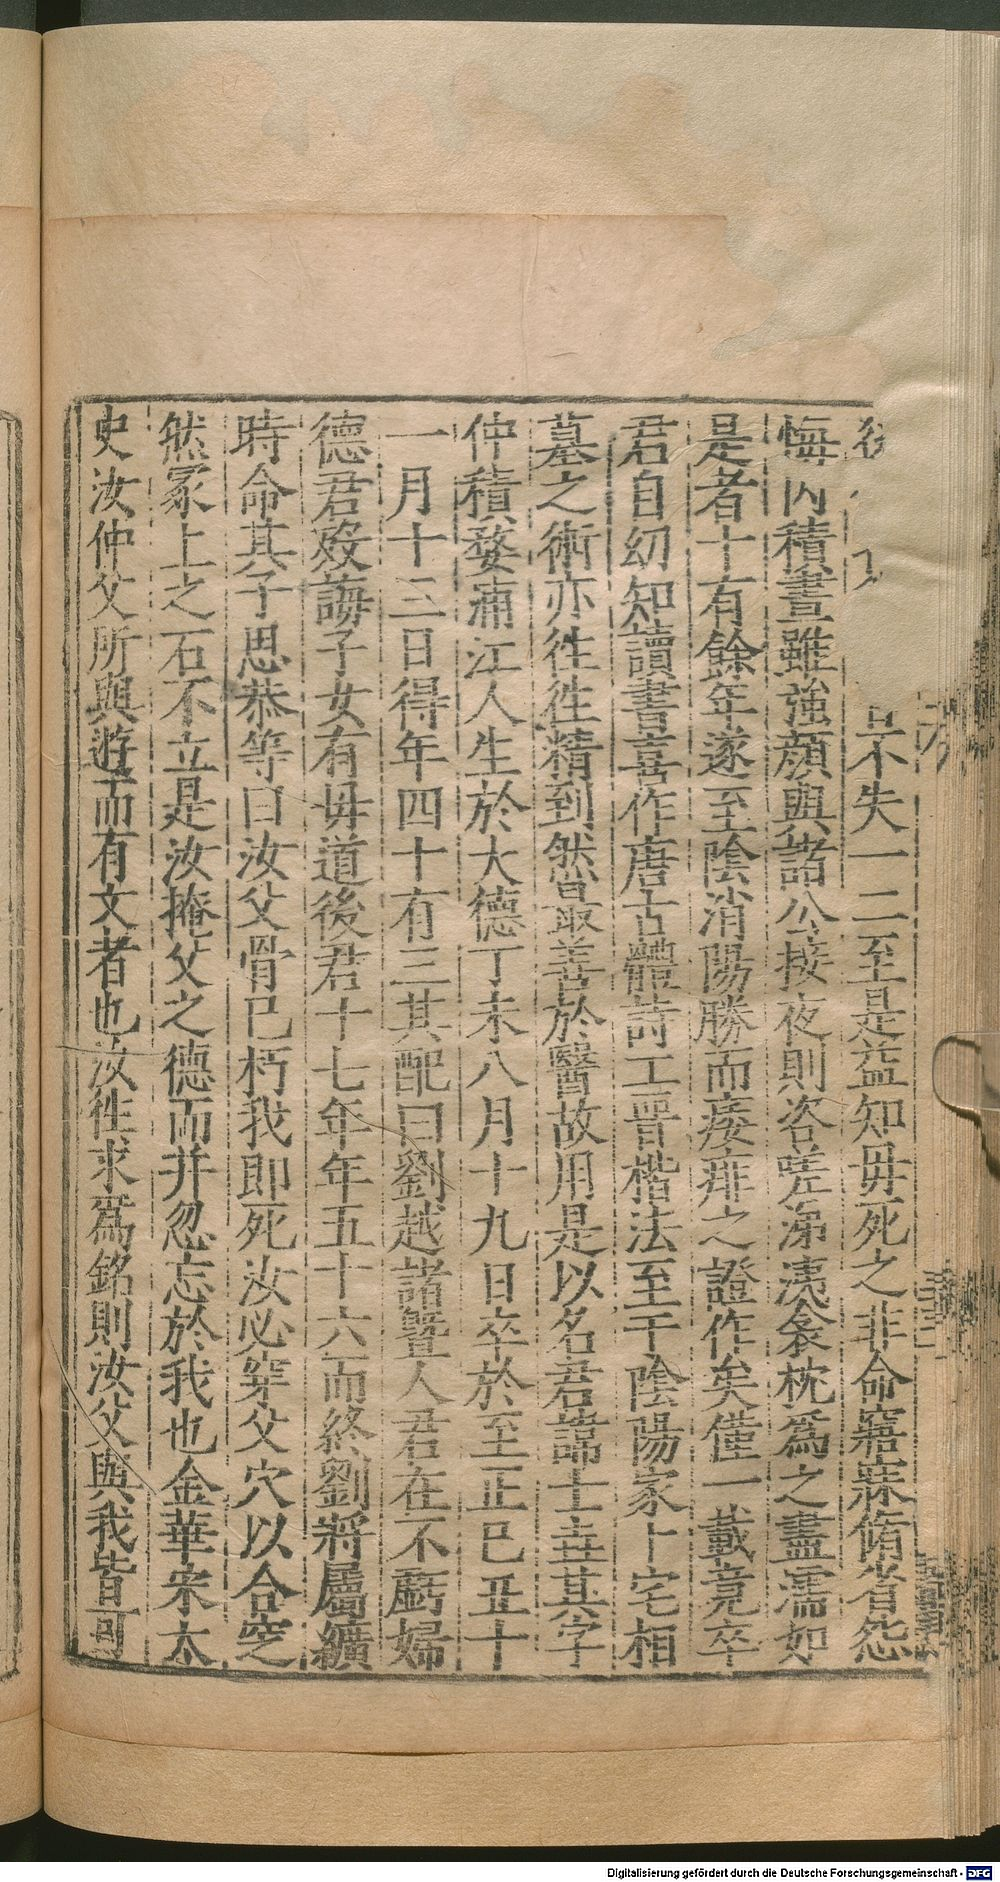 言不失一二至是益知毋死之非命寤寐脩省怨
悔內積晝雖強顏與諸公接夜則咨嗟涕洟衾枕爲之盡濡如
是者十有餘年遂至陰消陽勝而痿痱之證作矣僅一載竟卒
君自幼知讀書喜作唐古體詩工晉楷法至于陰陽家卜宅相
墓之術亦徃徃精到然最善於醫故用是以名君諱士垚其字
仲積婺浦江人生於大德丁未八月十九日卒於至正己丑十
一月十三日得年四十有三其配曰劉越諸暨人君在不虧婦
德君歿誨子女有毋道後君十七年年五十六而終劉將屬纊
時命其子思恭等曰汝父骨已朽我即死汝必穿父穴以合窆
然冢上之石不立是汝掩父之德而并忽忘於我也金華宋太
史汝仲父所與遊而有文者也汝徃求爲銘則汝父與我皆可
Digitalisierung gefördert durch die Deutsche Forschungsgemeinschaft - DFG